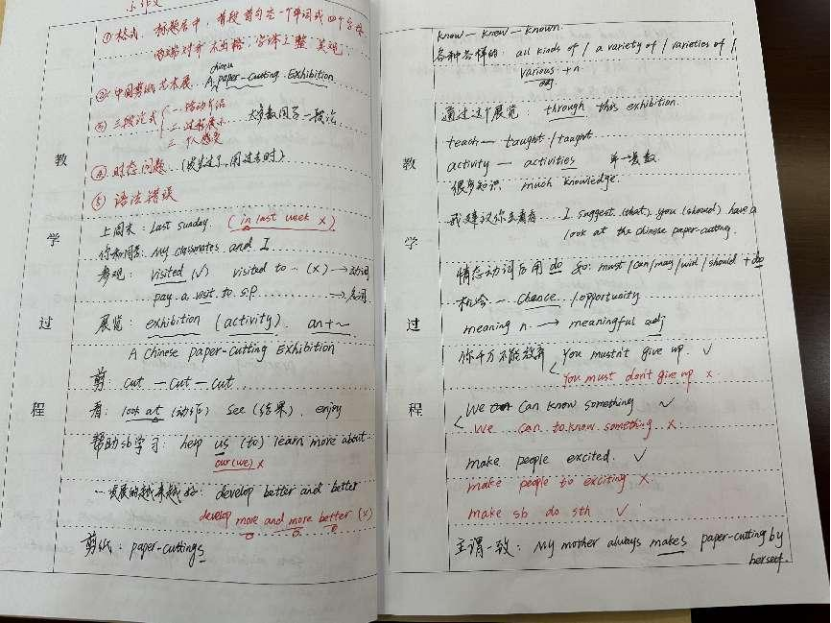 小作文
① 格式. 标题居中, 首段首句空一个单词或四个字母.
两端对齐 不出格 字体工整 美观.
② 中国剪纸艺术展. A Chinese paper-cutting Exhibition.
③ 三段论式 一. 活动介绍 大多数同学一段论
二. 过程展示
三. 个人感受
④ 时态问题. (发生过了, 用过去时)
⑤ 语法错误
上周末: Last Sunday. (in last week ×)
你和同学: My classmates and I
参观: visited (√) visited to... (×) → 动词
pay a visit to sp → 名词
展览: exhibition (activity). an+~
A Chinese paper-cutting Exhibition
剪 cut — cut — cut
看: look at (动作) see (结果). enjoy
帮助sb学习: help us (to) learn more about
our(we) ×
发展的越来越好: develop better and better
develop more and more better (×)
剪纸: paper-cuttings
教
学
过
程
know — knew — known.
各种各样的: all kinds of / a variety of / varieties of /
various + n
adj.
通过这个展览: through this exhibition.
teach — taught / taught
activity — activities 单—复数
很多知识. much knowledge.
我建议你去看看... I suggest (that) you (should) have a
look at the Chinese paper-cutting.
情态动词后用do must / can / may / will / should + do
机会 — Chance. / opportunity
meaning n. → meaningful adj
你千万不能放弃 You mustn't give up. √
You must don't give up ×.
We can know something √
We can to know something. ×.
make people excited. √
make people to exciting ×.
make sb do sth √
主谓一致: My mother always makes paper-cutting by
herself.
教
学
过
程